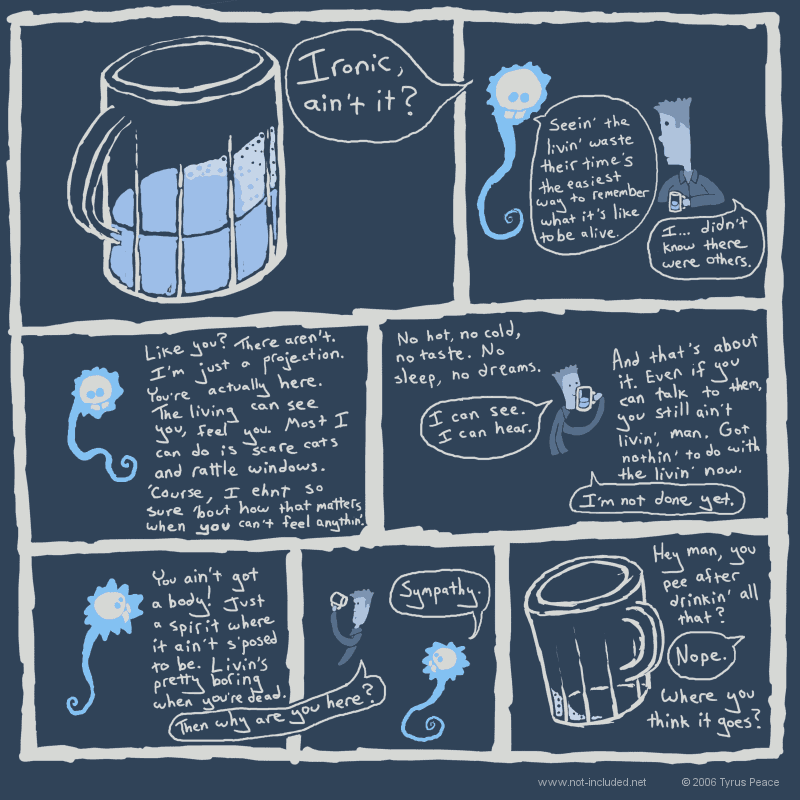 Ironic,
ain't it?
Seein' the
livin' waste
their time's
the easiest
way to remember
what it's like
to be alive.
I... didn't
know there
were others.
Like you? There aren't.
I'm just a projection.
You're actually here.
The living can see
you, feel you. Most I
can do is scare cats
and rattle windows.
'Course, I ehnt so
sure 'bout how that matters
when you can't feel anythin'.
No hot, no cold,
no taste. No
sleep, no dreams.
I can see.
I can hear.
And that's about
it. Even if you
can talk to them,
you still ain't
livin', man. Got
nothin' to do with
the livin' now.
I'm not done yet.
You ain't got
a body! Just
a spirit where
it ain't s'posed
to be. Livin's
pretty boring
when you're dead.
Then why are you here?
Sympathy.
Hey man, you
pee after
drinkin' all
that?
Nope.
Where you
think it goes?
www.not-included.net © 2006 Tyrus Peace